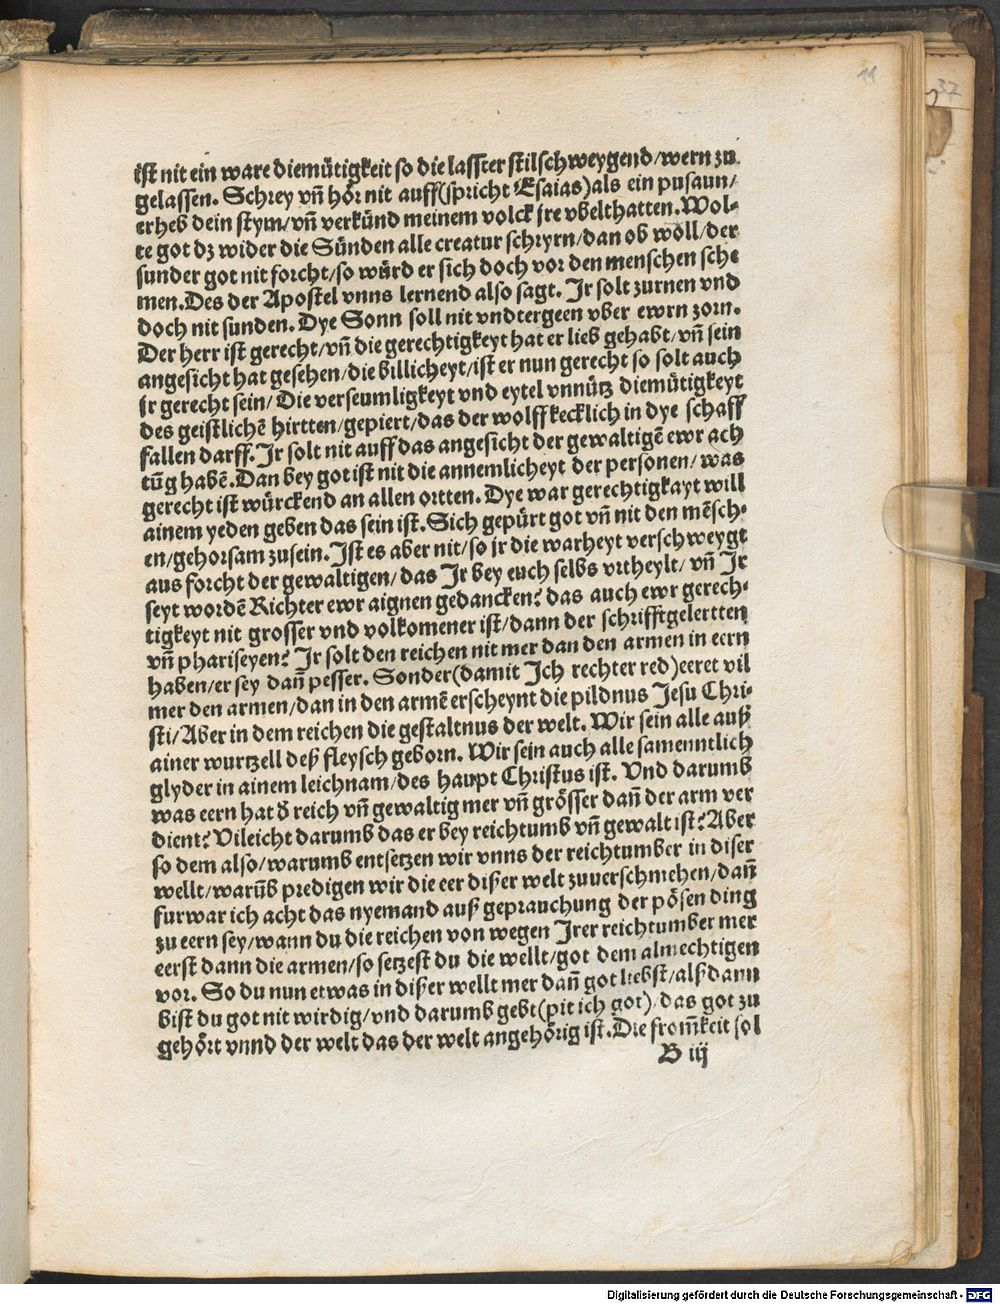 11
37
ist nit ein ware diemütigkeit so die lasster stilschweygend/wern zu
gelassen. Schrey vñ hör nit auff(spricht Esaias)als ein pusaun/
erheb dein stym/vñ verkünd meinem volck jre vbelthatten. Wol-
te got dz wider die Sünden alle creatur schryrn/dan ob wöll/der
sunder got nit forcht/so würd er sich doch vor den menschen sche
men. Des der Apostel vnns lernend also sagt. Jr solt zurnen vnd
doch nit sunden. Dye Sonn soll nit vndtergeen vber ewrn zorn.
Der herr ist gerecht/vñ die gerechtigkeyt hat er lieb gehabt/vñ sein
angesicht hat gesehen/die billicheyt/ist er nun gerecht so solt auch
ir gerecht sein/ Die verseumligkeyt vnd eytel vnnütz diemütigkeyt
des geistlichē hirtten/gepiert/das der wolff kecklich in dye schaff
fallen darff. Jr solt nit auff das angesicht der gewaltigē ewr ach
tūg habē. Dan bey got ist nit die annemlicheyt der personen/was
gerecht ist würckend an allen ortten. Dye war gerechtigkayt will
ainem yeden geben das sein ist. Sich gepürt got vñ nit den mēsch-
en/gehorsam zusein. Jst es aber nit/so jr die warheyt verschweygt
aus forcht der gewaltigen/das Jr bey euch selbs vrtheylt/vñ Jr
seyt wordē Richter ewr aignen gedancken? das auch ewr gerech-
tigkeyt nit grosser vnd volkomener ist/dann der schrifftgelertten
vñ phariseyen? Jr solt den reichen nit mer dan den armen in eern
haben/er sey dañ pesser. Sonder(damit Jch rechter red)eeret vil
mer den armen/dan in den armē erscheynt die pildnus Jesu Chri-
sti/Aber in dem reichen die gestaltnus der welt. Wir sein alle auß
ainer wurtzell deß fleysch geborn. Wir sein auch alle samenntlich
glyder in ainem leichnam/des haupt Christus ist. Vnd darumb
was eern hat d̕ reich vñ gewaltig mer vñ grösser dañ der arm ver
dient? Vileicht darumb das er bey reichtumb vñ gewalt ist? Aber
so dem also/warumb entsetzen wir vnns der reichtumber in diser
wellt/warūb predigen wir die eer dißer welt zuuerschmehen/dañ
furwar ich acht das nyemand auß geprauchung der pösen ding
zu eern sey/wann du die reichen von wegen Jrer reichtumber mer
eerst dann die armen/so setzest du die wellt/got dem almechtigen
vor. So du nun etwas in dißer wellt mer dañ got liebst/alß dann
bist du got nit wirdig/vnd darumb gebt(pit ich got) das got zu
gehört vnnd der welt das der welt angehörig ist. Die from̄keit sol
B iij
Digitalisierung gefördert durch die Deutsche Forschungsgemeinschaft - DFG